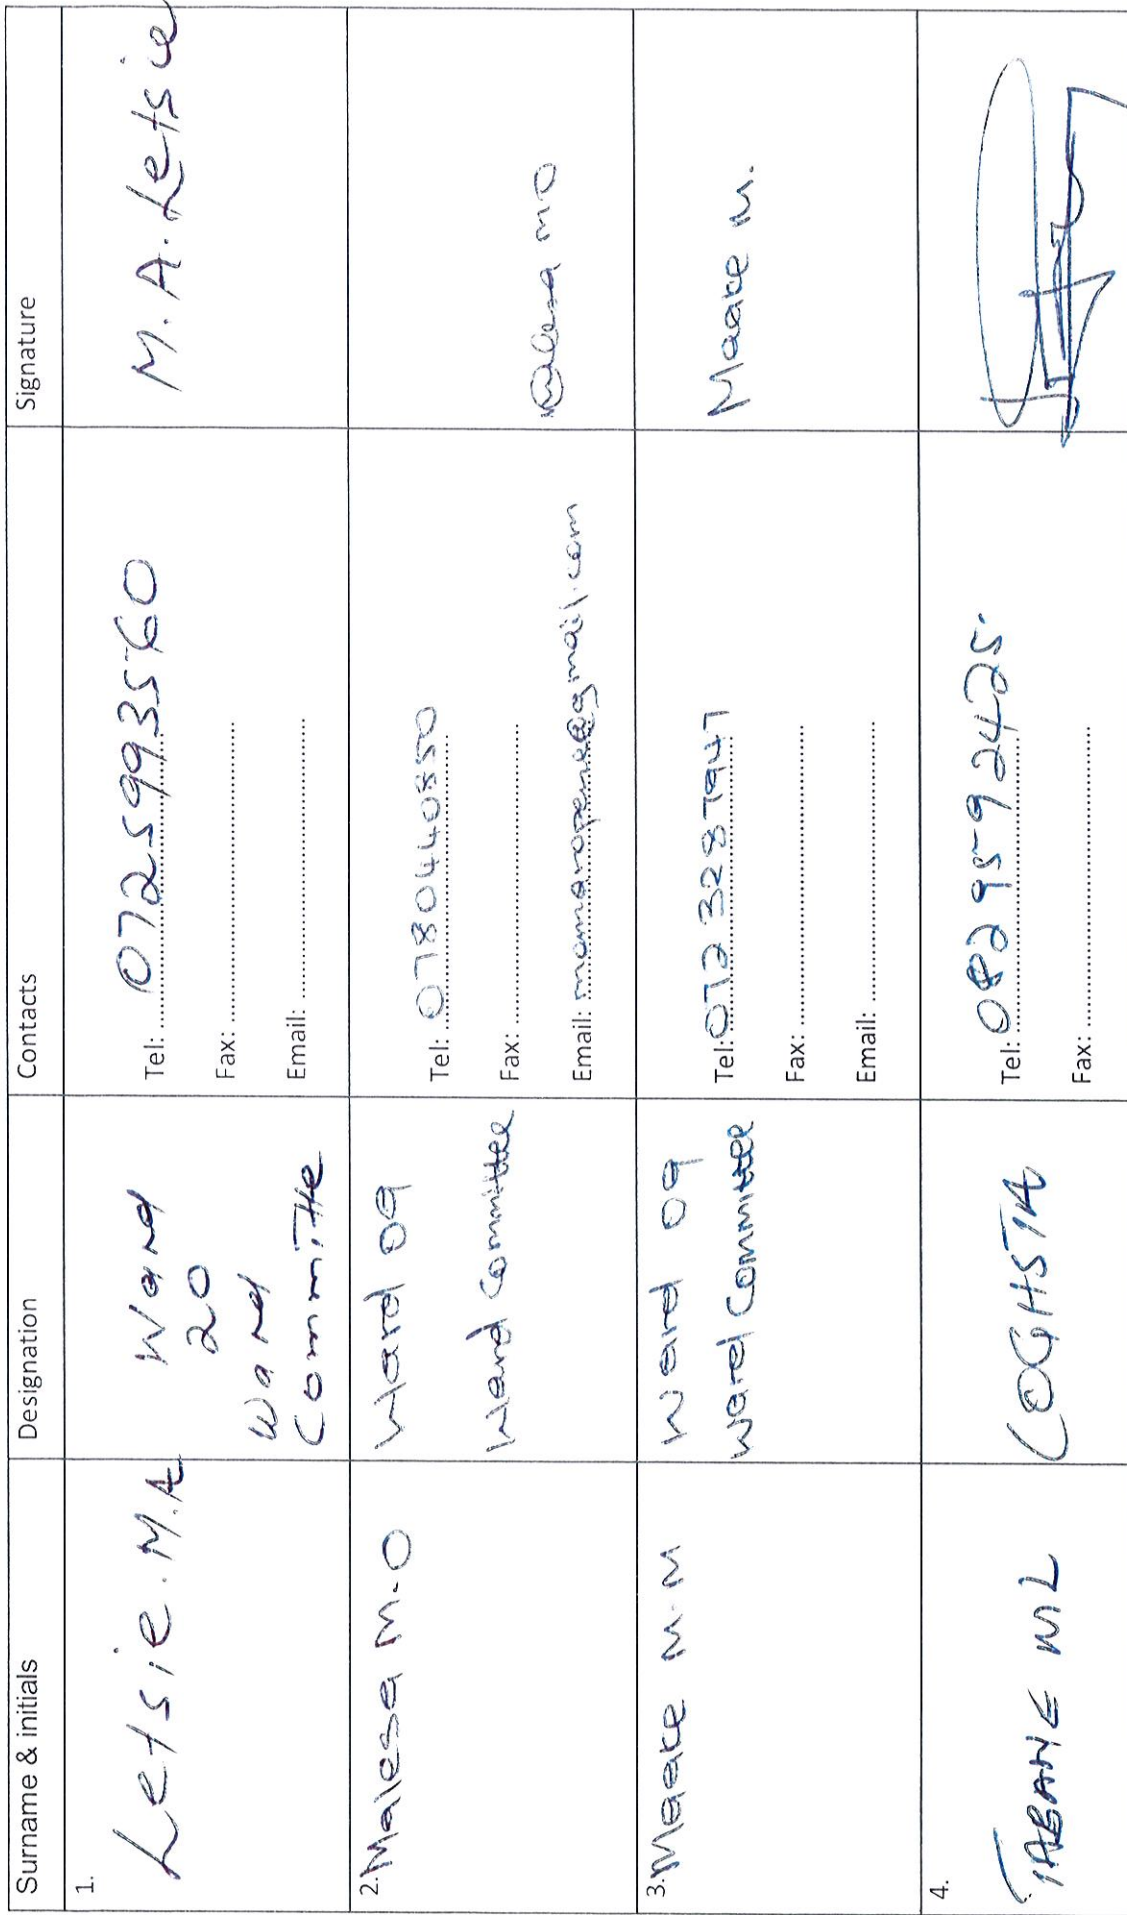 Surname & initials Designation Contacts Signature
1. Letsie . M.A Ward 20 Ward Committe Tel: 0725993560 M. A. Letsie
Fax:
Email:
2. Malesa M.O Ward 09 Ward Committee Tel: 0780440850 Malesa MO
Fax:
Email: momaropene@gmail.com
3. Maake M.M Ward 09 Ward Committee Tel: 0723287947 Maake M.
Fax:
Email:
4. TABANE ML COGHSTA Tel: 0829592425.
Fax: